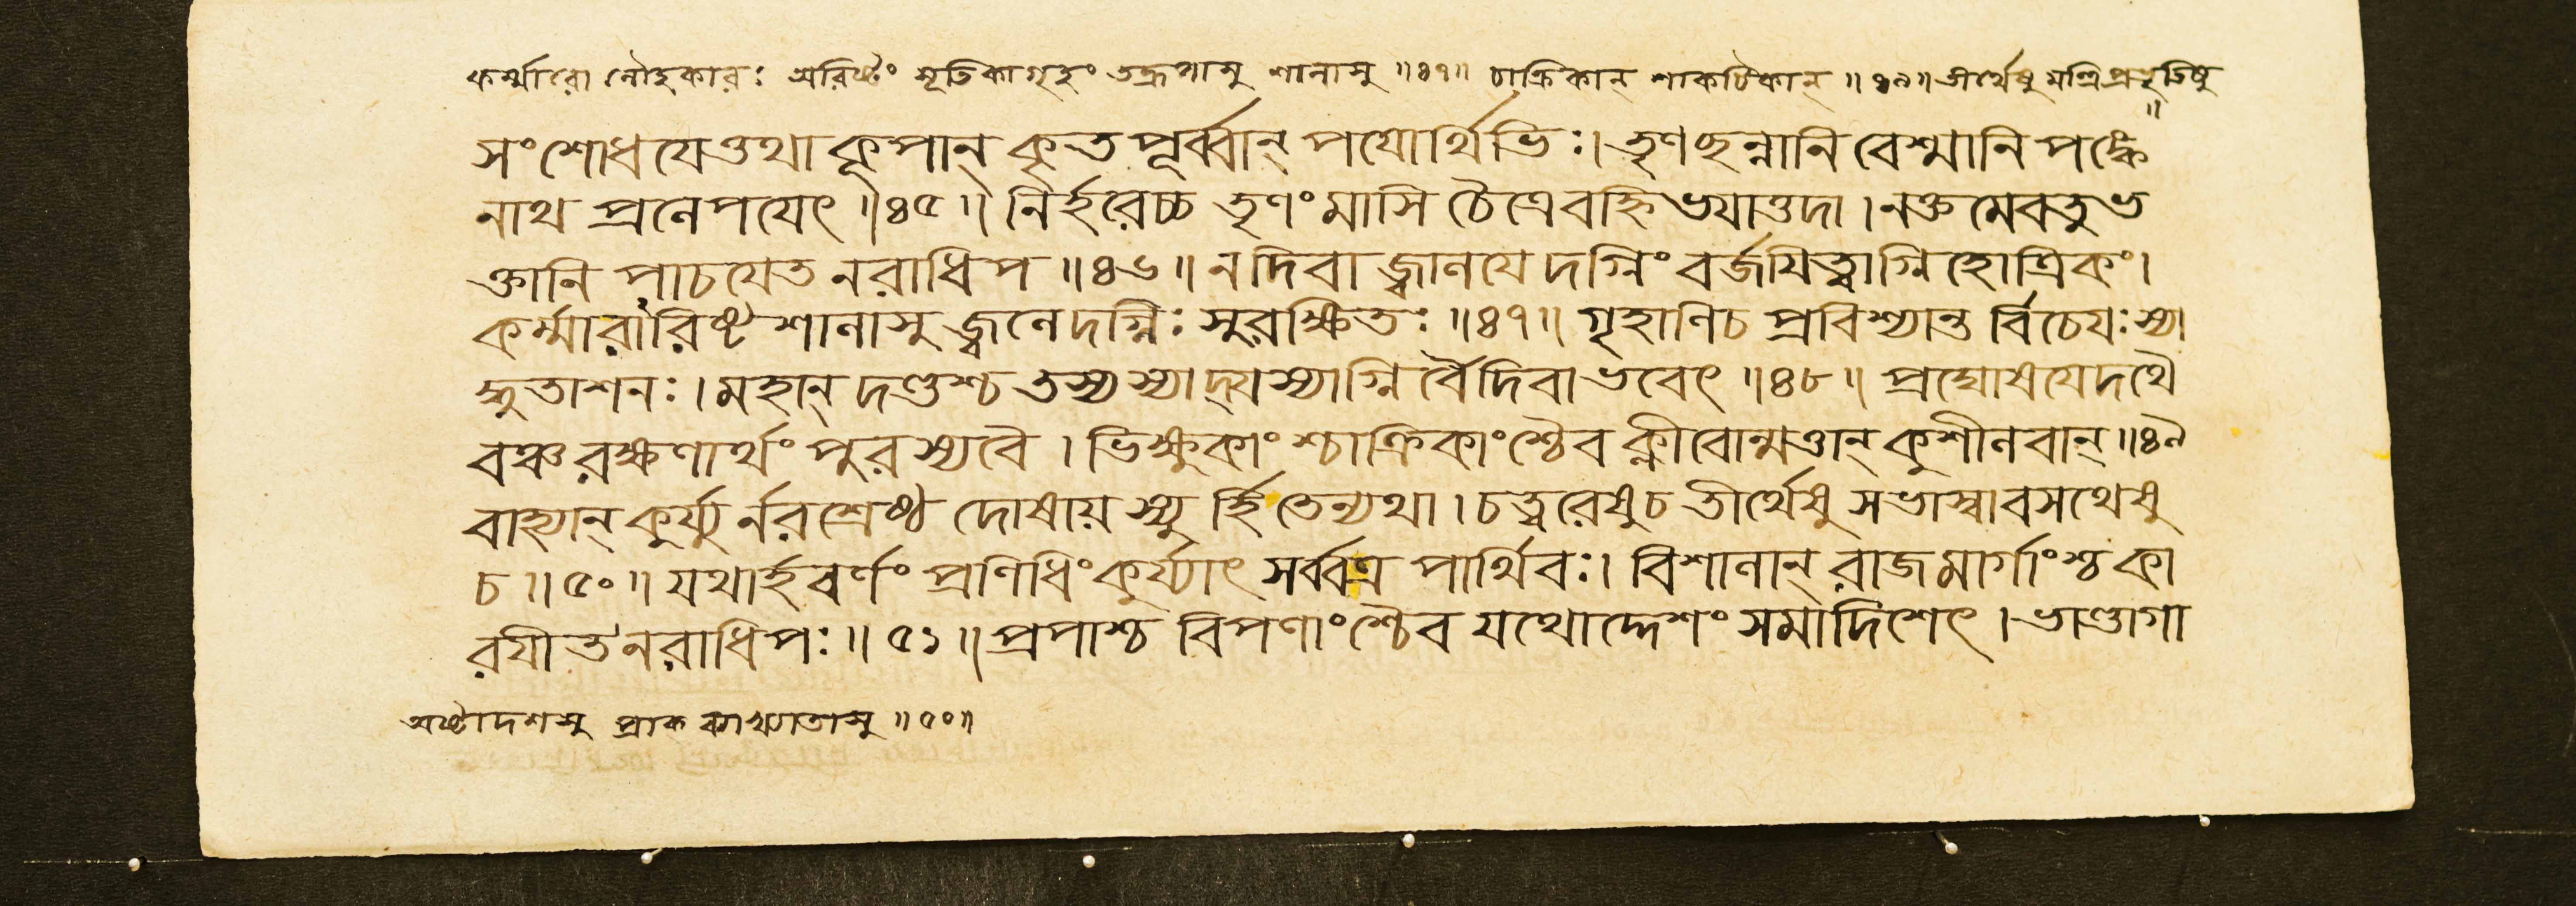 কর্ম্মারো লৌহকারঃ অরিষ্টং সূতিকাগৃহং তদ্রূপাসু শালাসু ॥৪৭॥ চাক্রিকান্ শাকটিকান্ ॥৪৯॥ তীর্থেষু মন্ত্রিপ্রভৃতিষু॥
সংশোধযেত্তথা কূপান্ কৃতপূর্ব্বান্ পযোর্থিভিঃ। তৃণছন্নানি বেশ্মানি পঙ্কে
নাথ প্রলেপযেৎ ॥৪৫॥ নির্হরেচ্চ তৃণং মাসি চৈত্রে বহ্নিভযাত্তদা। নক্তমেব তু ভ
ক্তানি পাচযেত নরাধিপ ॥৪৬॥ ন দিবা জ্বালযেদগ্নিং বর্জযিত্বাগ্নিহোত্রিকং।
কর্ম্মারারিষ্টশালাসু জ্বলেদগ্নিঃ সুরক্ষিতঃ ॥৪৭॥ গৃহাণি চ প্রবিশ্যান্ত র্বিচেযঃ স্যা
দ্ধুতাশনঃ। মহান্ দণ্ডশ্চ তস্য স্যাদ্যস্যাগ্নির্বৈ দিবা ভবেৎ ॥৪৮॥ প্রঘোষযেদথৈ
বঞ্চ রক্ষণার্থং পুরস্য বৈ। ভিক্ষুকাংশ্চাক্রিকাংশ্চৈব ক্লীবোন্মত্তান্ কুশীলবান্ ॥৪৯
বাহ্যান্ কুর্য্যুর্নরশ্রেষ্ঠ দোষায় স্যুর্হি তেন্যথা। চত্বরেষু চ তীর্থেষু সভাস্বাবসথেষু
চ ॥৫০॥ যথার্হবর্ণং প্রণিধিং কুর্য্যাৎ সর্ব্বত্র পার্থিবঃ। বিশালান্ রাজমার্গাংশ্চ কা
রযীত নরাধিপঃ ॥৫১॥ প্রপাশ্চ বিপণাংশ্চৈব যথোদ্দেশং সমাদিশেৎ। ভাণ্ডাগা
অষ্টাদশসু প্রাক ব্যাখ্যাতাসু ॥৫০॥